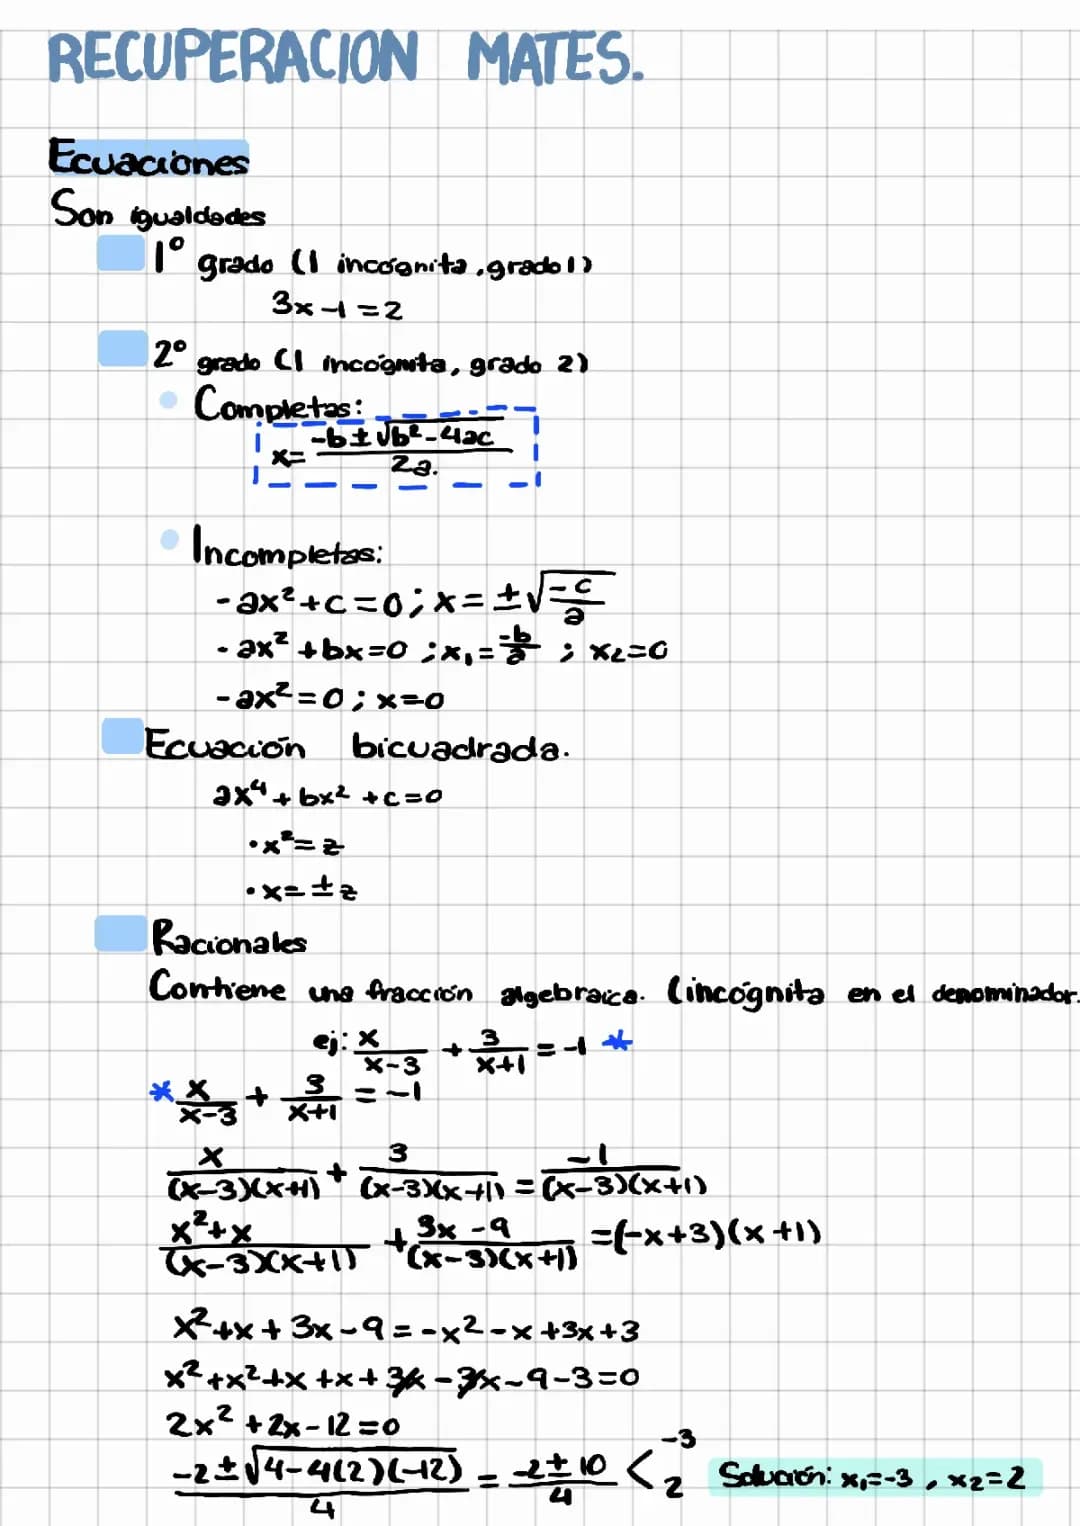 RECUPERACION MATES.
Ecuaciones
Son igualdades
1º grado (1 incógnita, grado 1)
3x-1=2
2º grado (1 incógnita, grado 2)
• Completas:
x= (-b±√(b²-4ac))/2a.
• Incompletas:
-ax²+c=0; x=±√(-c/a)
-ax²+bx=0; x₁=-b/a; x₂=0
-ax²=0; x=0
Ecuación bicuadrada.
ax⁴+bx²+c=0
•x²=z
•x=±z
Racionales
Contiene una fracción algebraica. (incógnita en el denominador.
ej: x/(x-3) + 3/(x+1) = -1 *
* x/(x-3) + 3/(x+1) = -1
x/((x-3)(x+1)) + 3/((x-3)(x+1)) = -1/((x-3)(x+1))
(x²+x)/((x-3)(x+1)) + (3x-9)/((x-3)(x+1)) =(-x+3)(x+1)
x²+x+3x-9=-x²-x+3x+3
x²+x²+x+x+3x-3x-9-3=0
2x²+2x-12=0
(-2±√(4-4(2)(-12)))/4 = (-2±10)/4 < -3 2 Solución: x₁=-3, x₂=2